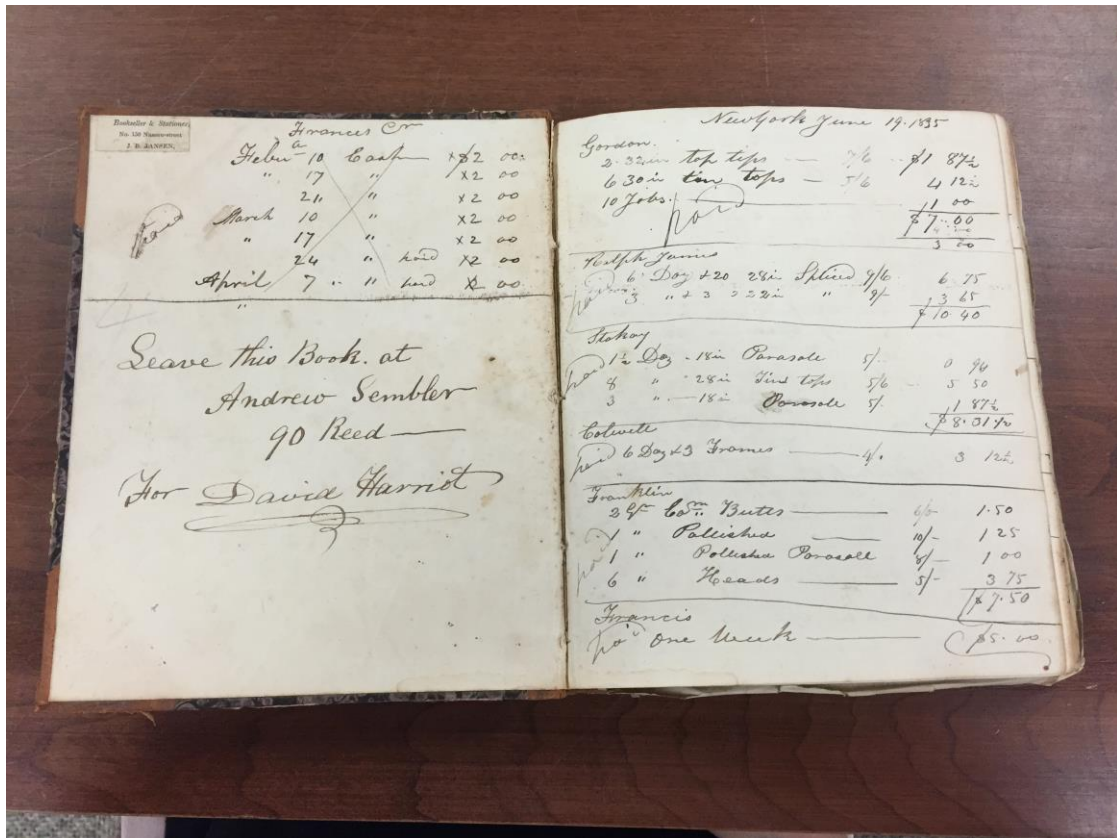 Bookseller & Stationer,
No. 158 Nassau-street
J. B. JANSEN,
Frances Cr
Febua 10 Cash x$2 00
" 17 " x2 00
24 " x2 00
March 10 " x2 00
" 17 " x2 00
24 " paid x2 00
April 7 " " paid x2 00
paid
"
Leave this Book at
Andrew Sembler
90 Reed —
For David Harriot
New York June 19. 1835
Gordon.
2. 32 in top tips — 7/6 $1 87½
6 30 in tin tops — 5/6 4 12½
10 Jobs. 1 00
paid $7.00
3 00
Ralph James
6 Doz & 20 28 in Spliced 9/6 6 75
paid 3 " & 3 22 in " 9/- 3 65
$10 40
Stokay
paid 1½ Doz - 18 in Parasole 5/. 0 94
8 " - 28 in Tind tops 5/6 5 50
3 " — 18 in Parasole 5/. 1 87½
$8.31½
Colwell
paid 6 Doz & 3 Frames — 4/. 3 12½
Franklin
2 Gr Com Butts — 6/0 1.50
1 " Pollished — 10/- 1 25
paid 1 " Pollished Parasoll 8/- 1 00
6 " Heads — 5/- 3 75
$7.50
Francis
paid One Week — $5.00